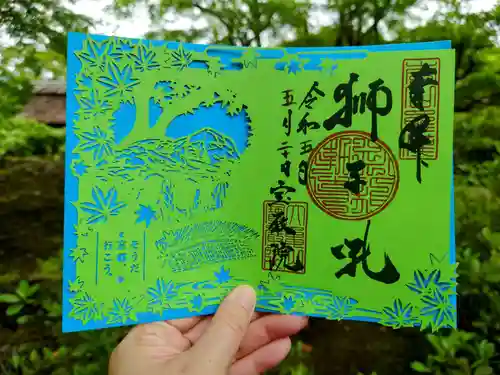 奉拝
獅子吼
宝厳院
令和五年
五月二十日
そうだ
京都、
行こう。